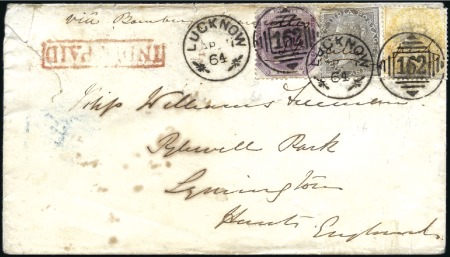 via Bombay
INDIA PAID
LUCKNOW
AP
64
162
LUCKNOW
64
162
Miss Williams
Pylewell Park
Lymington
Hants England